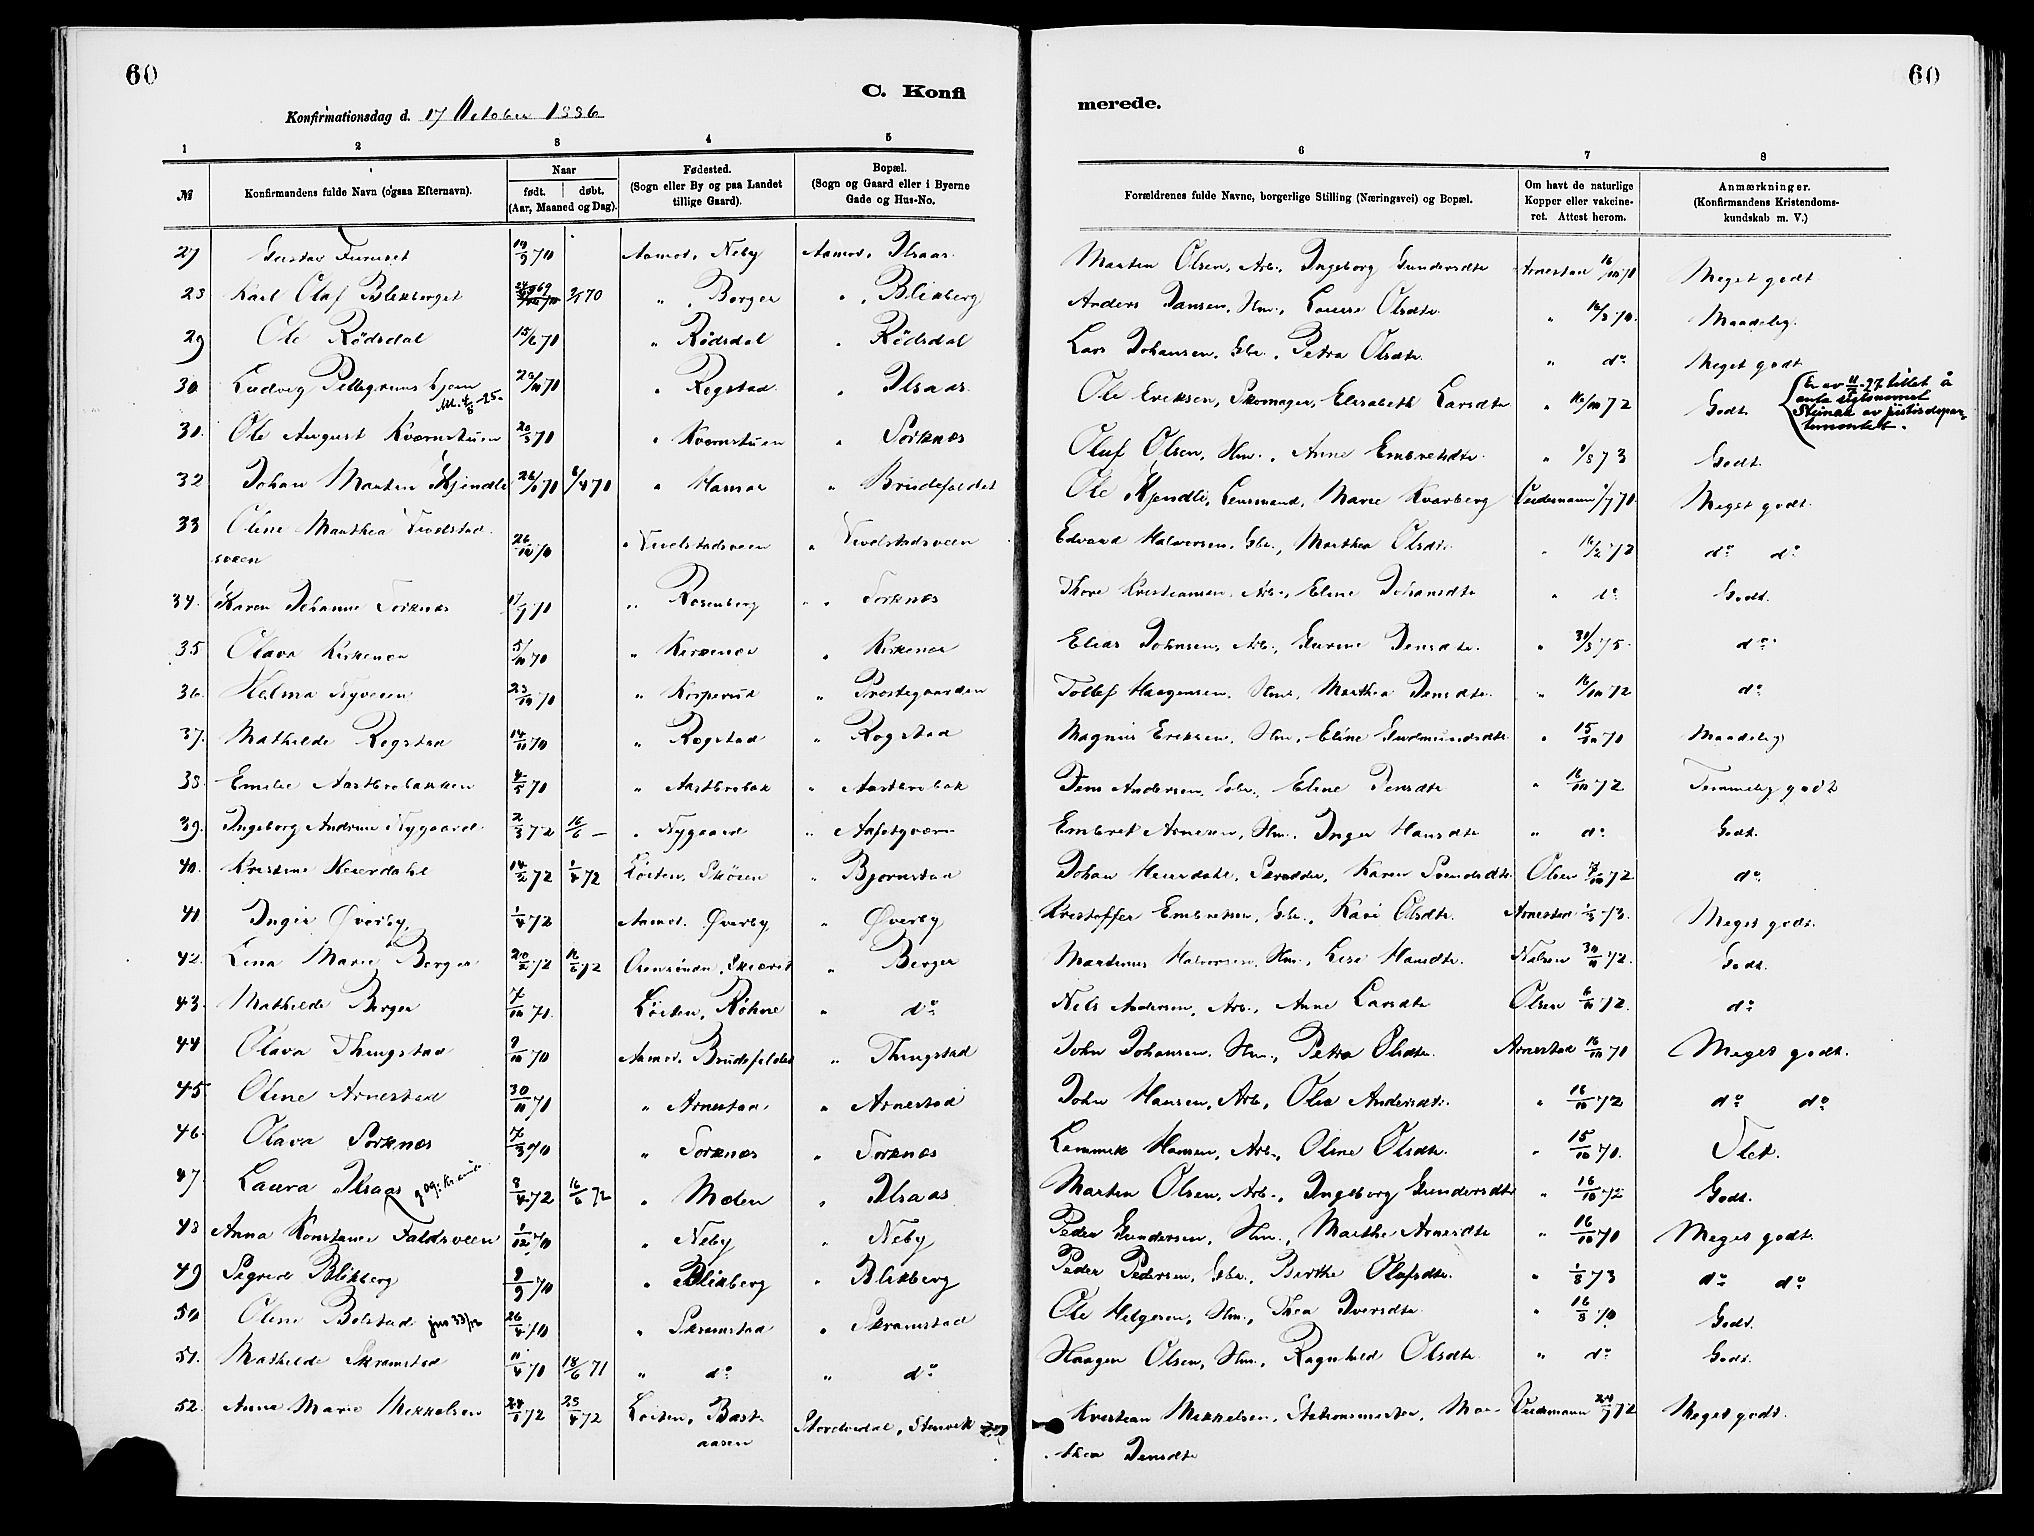 60
C. Konfi
Konfirmationsdag d. 17 October 1886
1 2 3 4 5
№
Konfirmandens fulde Navn (ogsaa Efternavn).
Naar
født. døbt.
(Aar, Maaned og Dag).
Fødested.
(Sogn eller By og paa Landet
tillige Gaard).
Bopæl.
(Sogn og Gaard eller i Byerne
Gade og Hus-No.
27 Gustav Furuset 19/9 70 Aamot, Neby Aamot, Ilsaas
28 Karl Olaf Blikberget 2/1 70 " Berger " Blikberg
29 Ole Rödsdal 15/6 70 " Rödsdal " Rödsdal
30 Ludvig Rogstad " Ilsaas
30. Ole August Kværnstuen 20/3 70 " Kværnstuen " Sorknæs
32 Johan Martin Kjendli 26/1 70 6/4 70 " Hamar " Brudefaldet
33 Oline Marthea Tvedstad-
sveen 26/10 70 " Tvedstadsveen " Tvedstadsveen
34. Karen Johanne Sorknæs 17/9 70 " Rosenberg " Sorknæs
35 Olava Kirkenær 5/10 70 " Kirkenær " Kirkenær
36. Helma Nyveien 23/10 70 " Kopperud " Prestegaarden
37. Mathilde Rogstad 14/11 70 " Rogstad " Rogstad
38. Emilie Aasterebakken 4/5 70 " Aasterebak " Aasterebak
39. Ingeborg Andrine Nygaard 2/3 72 16/6 — " Nygaard "
40. Kristine Heierdahl 14/2 72 1/4 72 Löiten, Sköien " Bjørnstad
41. Inger Øverby 1/4 72 Aamot. Øverby " Øverby
42. Lina Marie Berger 20/2 72 16/6 72 " Berger
43. Mathilde Berger 7/10 70. Löiten, Röhne " do
44. Olava Thingstad 9/10 70 Aamot. Brudefaldet " Thingstad
45. Oline Arnestad 30/11 70 " Arnestad. " Arnestad
46. Olava Sorknæs 7/3 70 " Sorknæs " Sorknæs
47. Laura Ilsaas 8/4 72 16/6 72 " Moden " Ilsaas
48 Anna Konstance Faldsveen 1/12 70 " Neby " Neby
49 Sigrid Blikberg 9/9 70 " Blikberg " Blikberg
50 Oline Bolstad 26/4 70 " Skramstad " Skramstad
51. Mathilde Skramstad 11/4 70 18/6 71 " do " do
52. Anna Marie Mikkelsen 24/1 72 23/4 72 Löiten, Bast-
aasen Storelvedal, Stenvik
60
merede.
6 7 8
Forældrenes fulde Navne, borgerlige Stilling (Næringsvei) og Bopæl.
Om havt de naturlige
Kopper eller vakcine-
ret. Attest herom.
Anmærkninger.
(Konfirmandens Kristendoms-
kundskab m. V.)
Martin Olsen, Arb., Ingeborg Gundersdtr Arnestad 16/10 70 Meget godt
Anders Jansen, Hm., Lovise Olsdtr. " Maadelig.
Lars Johansen, Gbr., Petra Olsdtr. " do Meget godt
Ole Eriksen, Skomager, Elisabeth Larsdtr " 16/10 72 Godt
Er av 11/2-27 tillat å
anta slegtsnavnet
Stenak av justisdepar-
tementet.
Oluf Olsen, Hm., Anne Embretsdtr. " 1/8 73 Godt.
Ole Kjendli, Lensmand, Marie Kvarberg 1/7 70 Meget godt.
Edvard Halvorsen, Gbr., Marthea Olsdtr. " do do
Thore Kristiansen, Arb., Eline Johansdtr " do Godt.
Elias Johnsen, Arb., Gurine Jensdtr. " 30/8 75. do
Tollef Haagensen, Hm., Marthea Jensdtr. " 16/10 72 do
Magnus Eriksen, Hm., Eline Gudmundsdtr " 15/10 70 Maadelig
Jens Andersen, Gbr., Eline Jensdtr " 16/10 72 Temmelig godt
Embret Arnesen, Hm. Inger Hansdtr " do Godt.
Johan Heierdahl, Skrædder, Karen Svendsdtr. Olsen 7/10 72 do
Kristoffer Embretsen, Gbr., Kari Olsdtr. Arnestad 1/8 73. Meget godt.
Martinus Halvorsen, Hm., Lise Hansdtr. Nielsen 30/11 72. Godt.
Nils Andersen, Arb., Anne Larsdtr Olsen 6/11 72. do
John Johansen, Hm., Petra Olsdtr. Arnestad 16/10 70 Meget godt.
John Hansen, Arb., Olea Andersdtr. " 16/10 72 do do
Lemmik Hansen, Arb., Oline Olsdtr. " 15/10 70. Slet.
Martin Olsen, Arb., Ingeborg Gundersdtr " 16/10 72 Godt.
Peder Gundersen, Hm., Marthe Arnesdtr " 16/10 70 Meget godt.
Peder Pedersen, Gbr., Berthe Olafsdtr. " 1/8 73 do do
Ole Helgesen, Hm., Thea Iversdtr. " 16/8 70 Godt.
Haagen Olsen, Hm., Ragnhild Olsdtr. " do Godt.
Kristian Mikkelsen, Stationsmester, Mar-
thea Jensdtr 24/7 72 Meget godt.